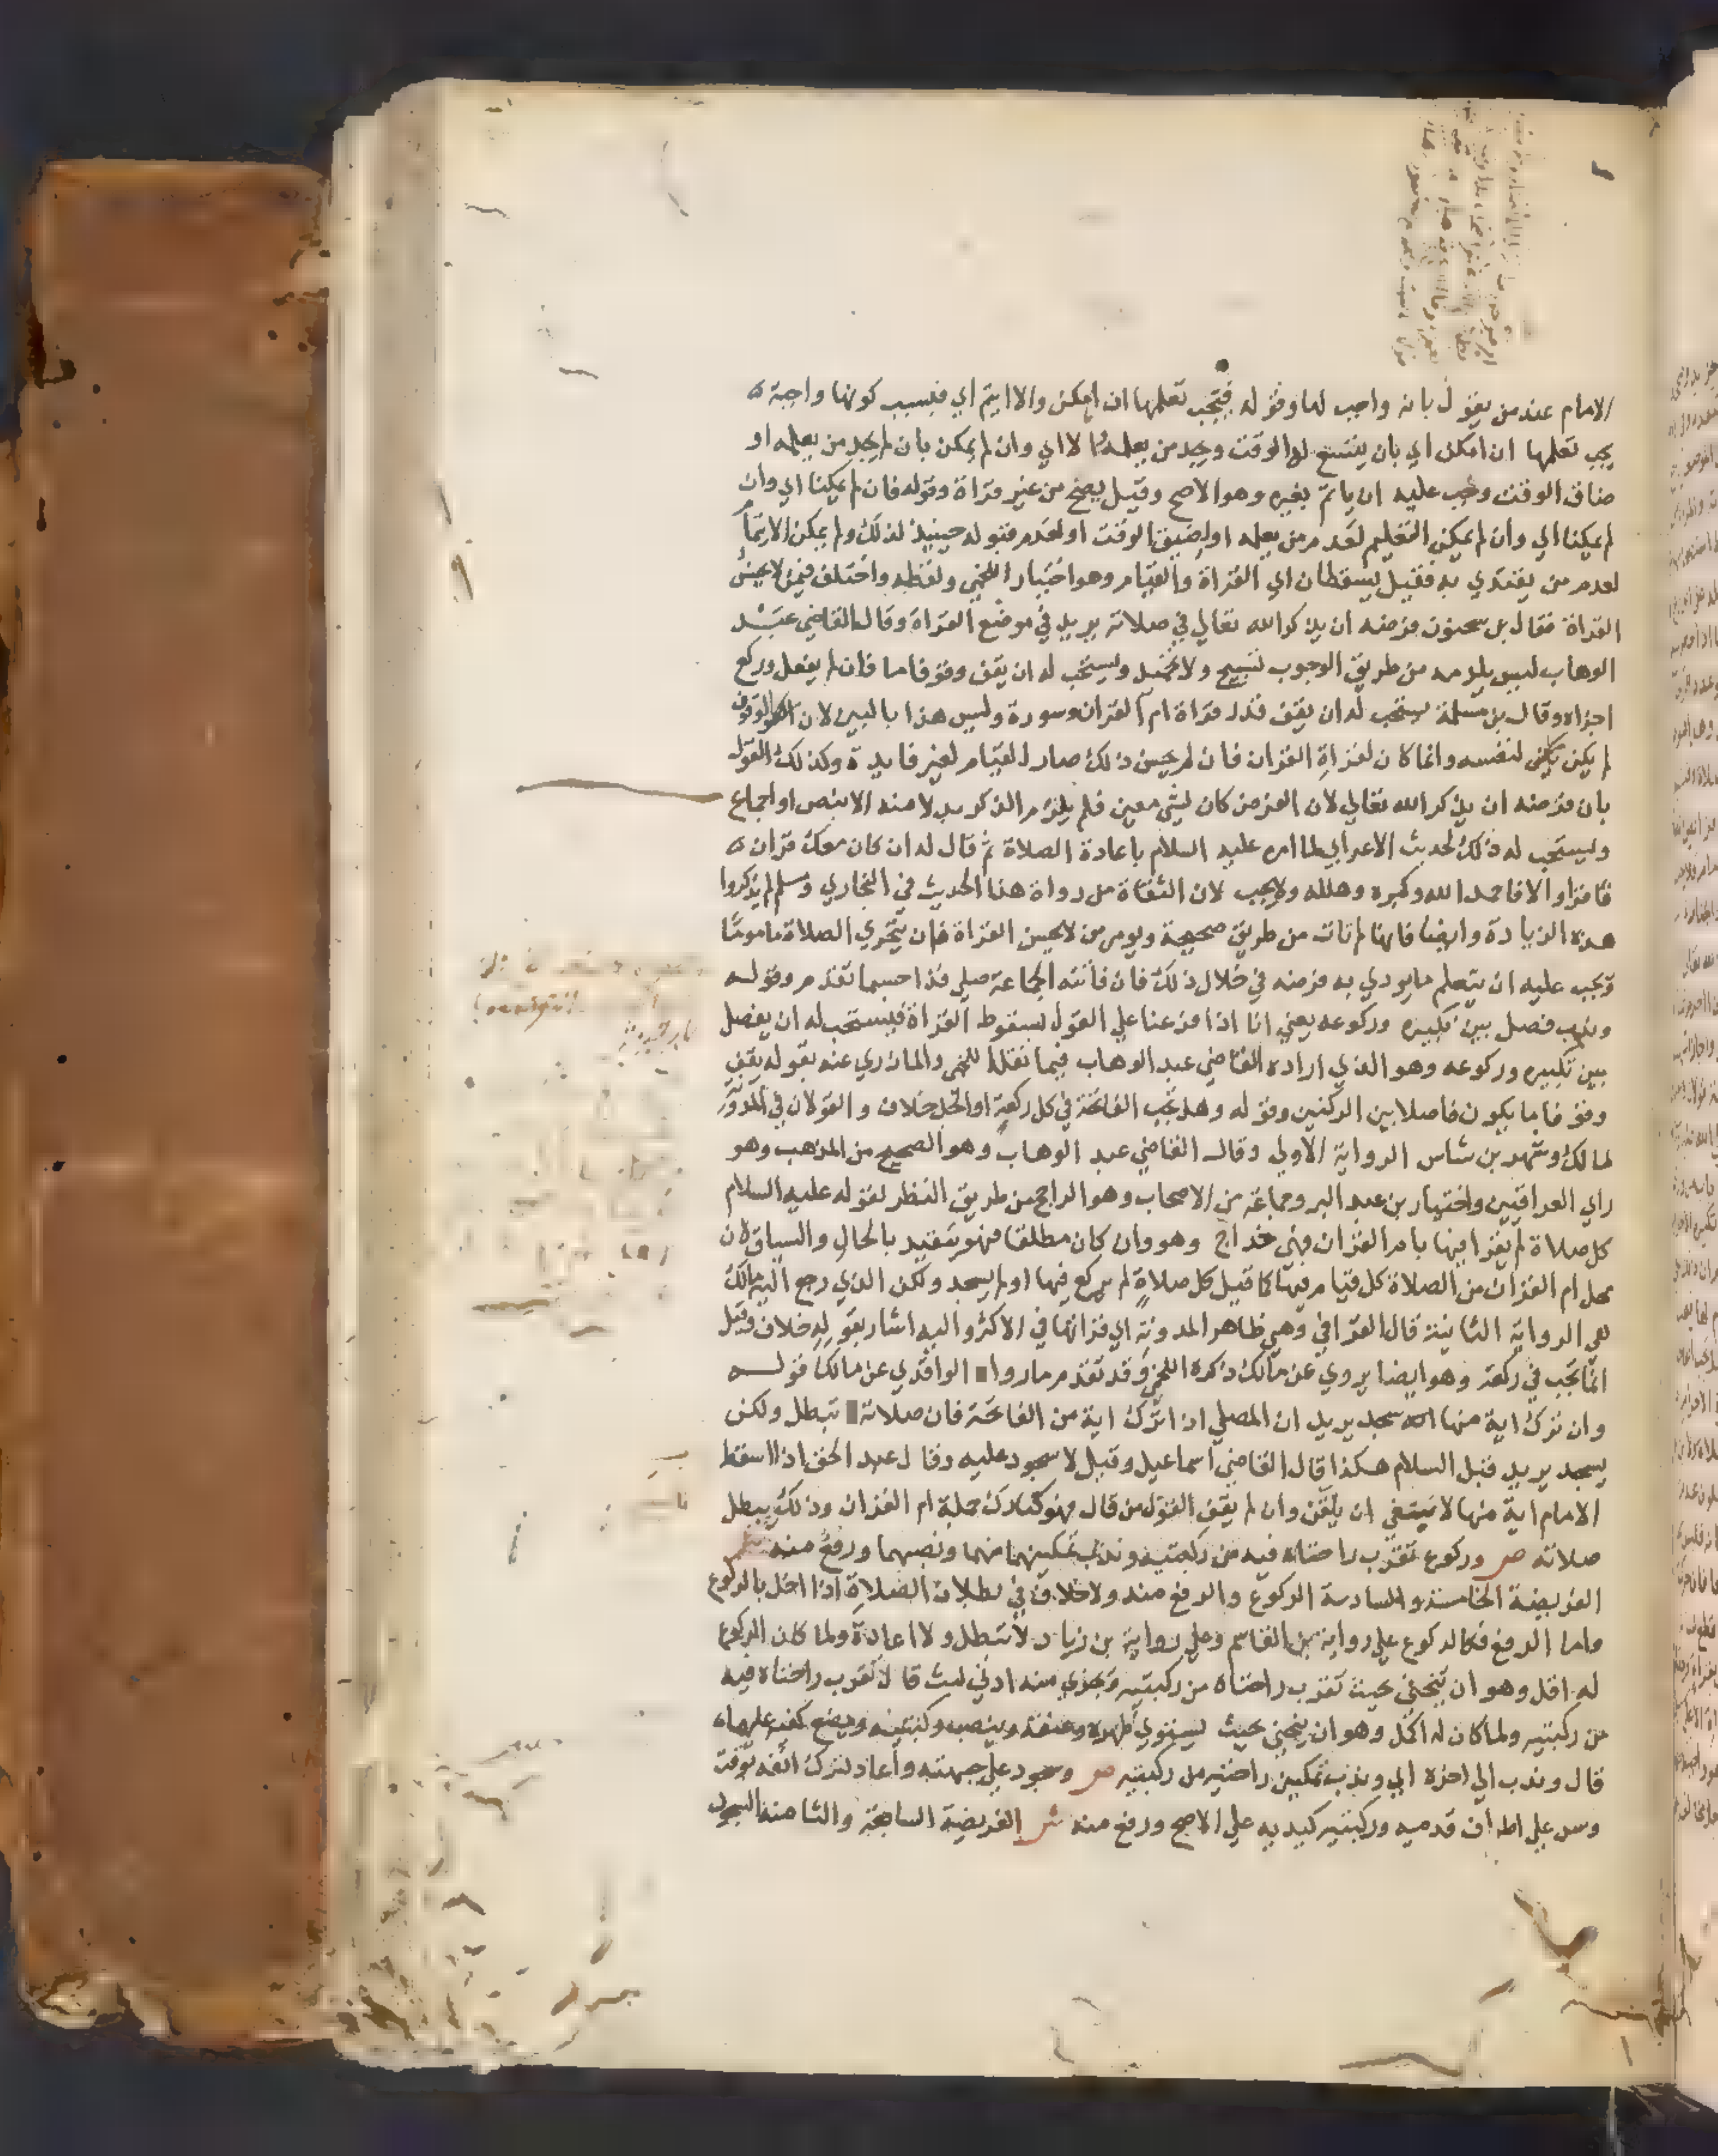 الامام عند من يقول بانه واجب لها وقوله فيجب تعلمها ان امكن والا ايتم اي فبسبب كونها واجبة
يجب تعلمها ان امكن اي بان يتسع له الوقت ويجد من يعلمه لا اي وان لم يمكن بان لم يجد من يعلمه او
ضاق الوقت وجب عليه ان ياتم بغيره وهو الاصح وقيل يصح من غير قراة وقوله فان لم يمكنا اي وان
لم يمكنا اي وان لم يمكن التعليم لعدم من يعلمه او لضيق الوقت او لعدم قبوله حينيذ لذلك ولم يمكن الايتمام
لعدم من يقتدي به فقيل يسقطان اي القراة والقيام وهو اختيار اللخمي ولفظه واختلف فيمن لا يحسن
القراة فقال بن سحنون فرضه ان يذكر الله تعالي في صلاته يريد في موضع القراة وقال القاضي عبد
الوهاب ليس يلزمه من طريق الوجوب تسبيح ولا تحميد ويستحب له ان يقف وقوفا ما فان لم يفعل وركع
اجزاه وقال بن مسلمة يستحب له ان يقف قدر قراة ام القران وسورة وليس هذا بالبين لان الوقوف
لم يكن لنفسه وانما كان لقراة القران فان لم يحسن ذلك صار القيام لغير فايدة وكذلك القول
بان فرضه ان يذكر الله تعالي لان الفرض كان لشي معين فلم يلزم الذكر بدلا منه الا بنص او اجماع
ويستحب له ذلك لحديث الاعرابي لما امره عليه السلام باعادة الصلاة ثم قال له ان كان معك قران
فاقرا والا فاحمد الله وكبره وهلله ولا يجب لان الثقاة من رواة هذا الحديث في البخاري ومسلم لم يذكروا
هذه الزيادة وايضا فانها لم تات من طريق صحيحة ويومر من لا يحسن القراة فان يتحري الصلاة ماموما
ويجب عليه ان يتعلم ما يودي به فرضه في خلال ذلك فان فاتته الجماعة صلي فذا حسبما تقدم وقوله
وندب فصل بين تكبيره وركوعه يعني انا اذا فرعنا علي القول بسقوط القراة فيستحب له ان يفصل
بين تكبيره وركوعه وهو الذي اراده القاضي عبد الوهاب فيما نقله اللخمي والمازري عنه بقوله يقف
وقوفا ما يكون فاصلا بين الركنين وقوله وهل تجب الفاتحة في كل ركعة او الجل خلاف والقولان في المدونة
لمالك وشهر بن شاس الرواية الاولي وقال القاضي عبد الوهاب وهو الصحيح من المذهب وهو
راي العراقيين واختيار بن عبد البر وجماعة من الاصحاب وهو الراجح من طريق النظر لقوله عليه السلام
كل صلاة لم يقرا فيها بام القران فهي خداج وهو وان كان مطلقا فهو مقيد بالحال والسياق لان
محل ام القران من الصلاة كل قيام فيها كما قيل كل صلاة لم يركع فيها او لم يسجد ولكن الذي رجع اليه مالك
هي الرواية الثانية قال القرافي وهي ظاهر المدونة اي قراتها في الاكثر واليه اشار بقوله خلاف وقيل
انما تجب في ركعة وهو ايضا يروي عن مالك ذكره اللخمي وقد تقدم ما روا الواقدي عن مالك قوله
وان ترك اية منها سجد يريد ان المصلي اذا ترك اية من الفاتحة فان صلاته تبطل ولكن
يسجد يريد قبل السلام هكذا قال القاضي اسماعيل وقيل لا سجود عليه وقال عبد الحق اذا اسقط
الامام اية منها لا ينبغي ان يلقن وان لم يقف القول من قال فهو كتارك جملة ام القران وذلك يبطل
صلاته ص وركوع تقرب راحتاه فيه من ركبتيه وندب تمكينهما منهما ونصبهما ورفع منه ش
الفريضة الخامسة والسادسة الركوع والرفع منه ولا خلاف في بطلان الصلاة اذا اخل بالركوع
واما الرفع فكالركوع علي رواية بن القاسم وعلي رواية بن زياد لا تبطل ولا اعادة ولما كان الركوع
له اقل وهو ان ينحني حيث تقرب راحتاه من ركبتيه ويجزي منه ادني لبث قال تقرب راحتاه فيه
من ركبتيه ولما كان له اكمل وهو ان ينحني بحيث يستوي ظهره وعنقه وينصب ركبتيه ويضع كفيه عليهما
قال وندب الي اخره اي وندب تمكين راحتيه من ركبتيه ص وسجود علي جبهته واعاد لترك انفه بوقت
وسن علي اطراف قدميه وركبتيه كيديه علي الاصح ورفع منه ش الفريضة السابعة والثامنة السجود